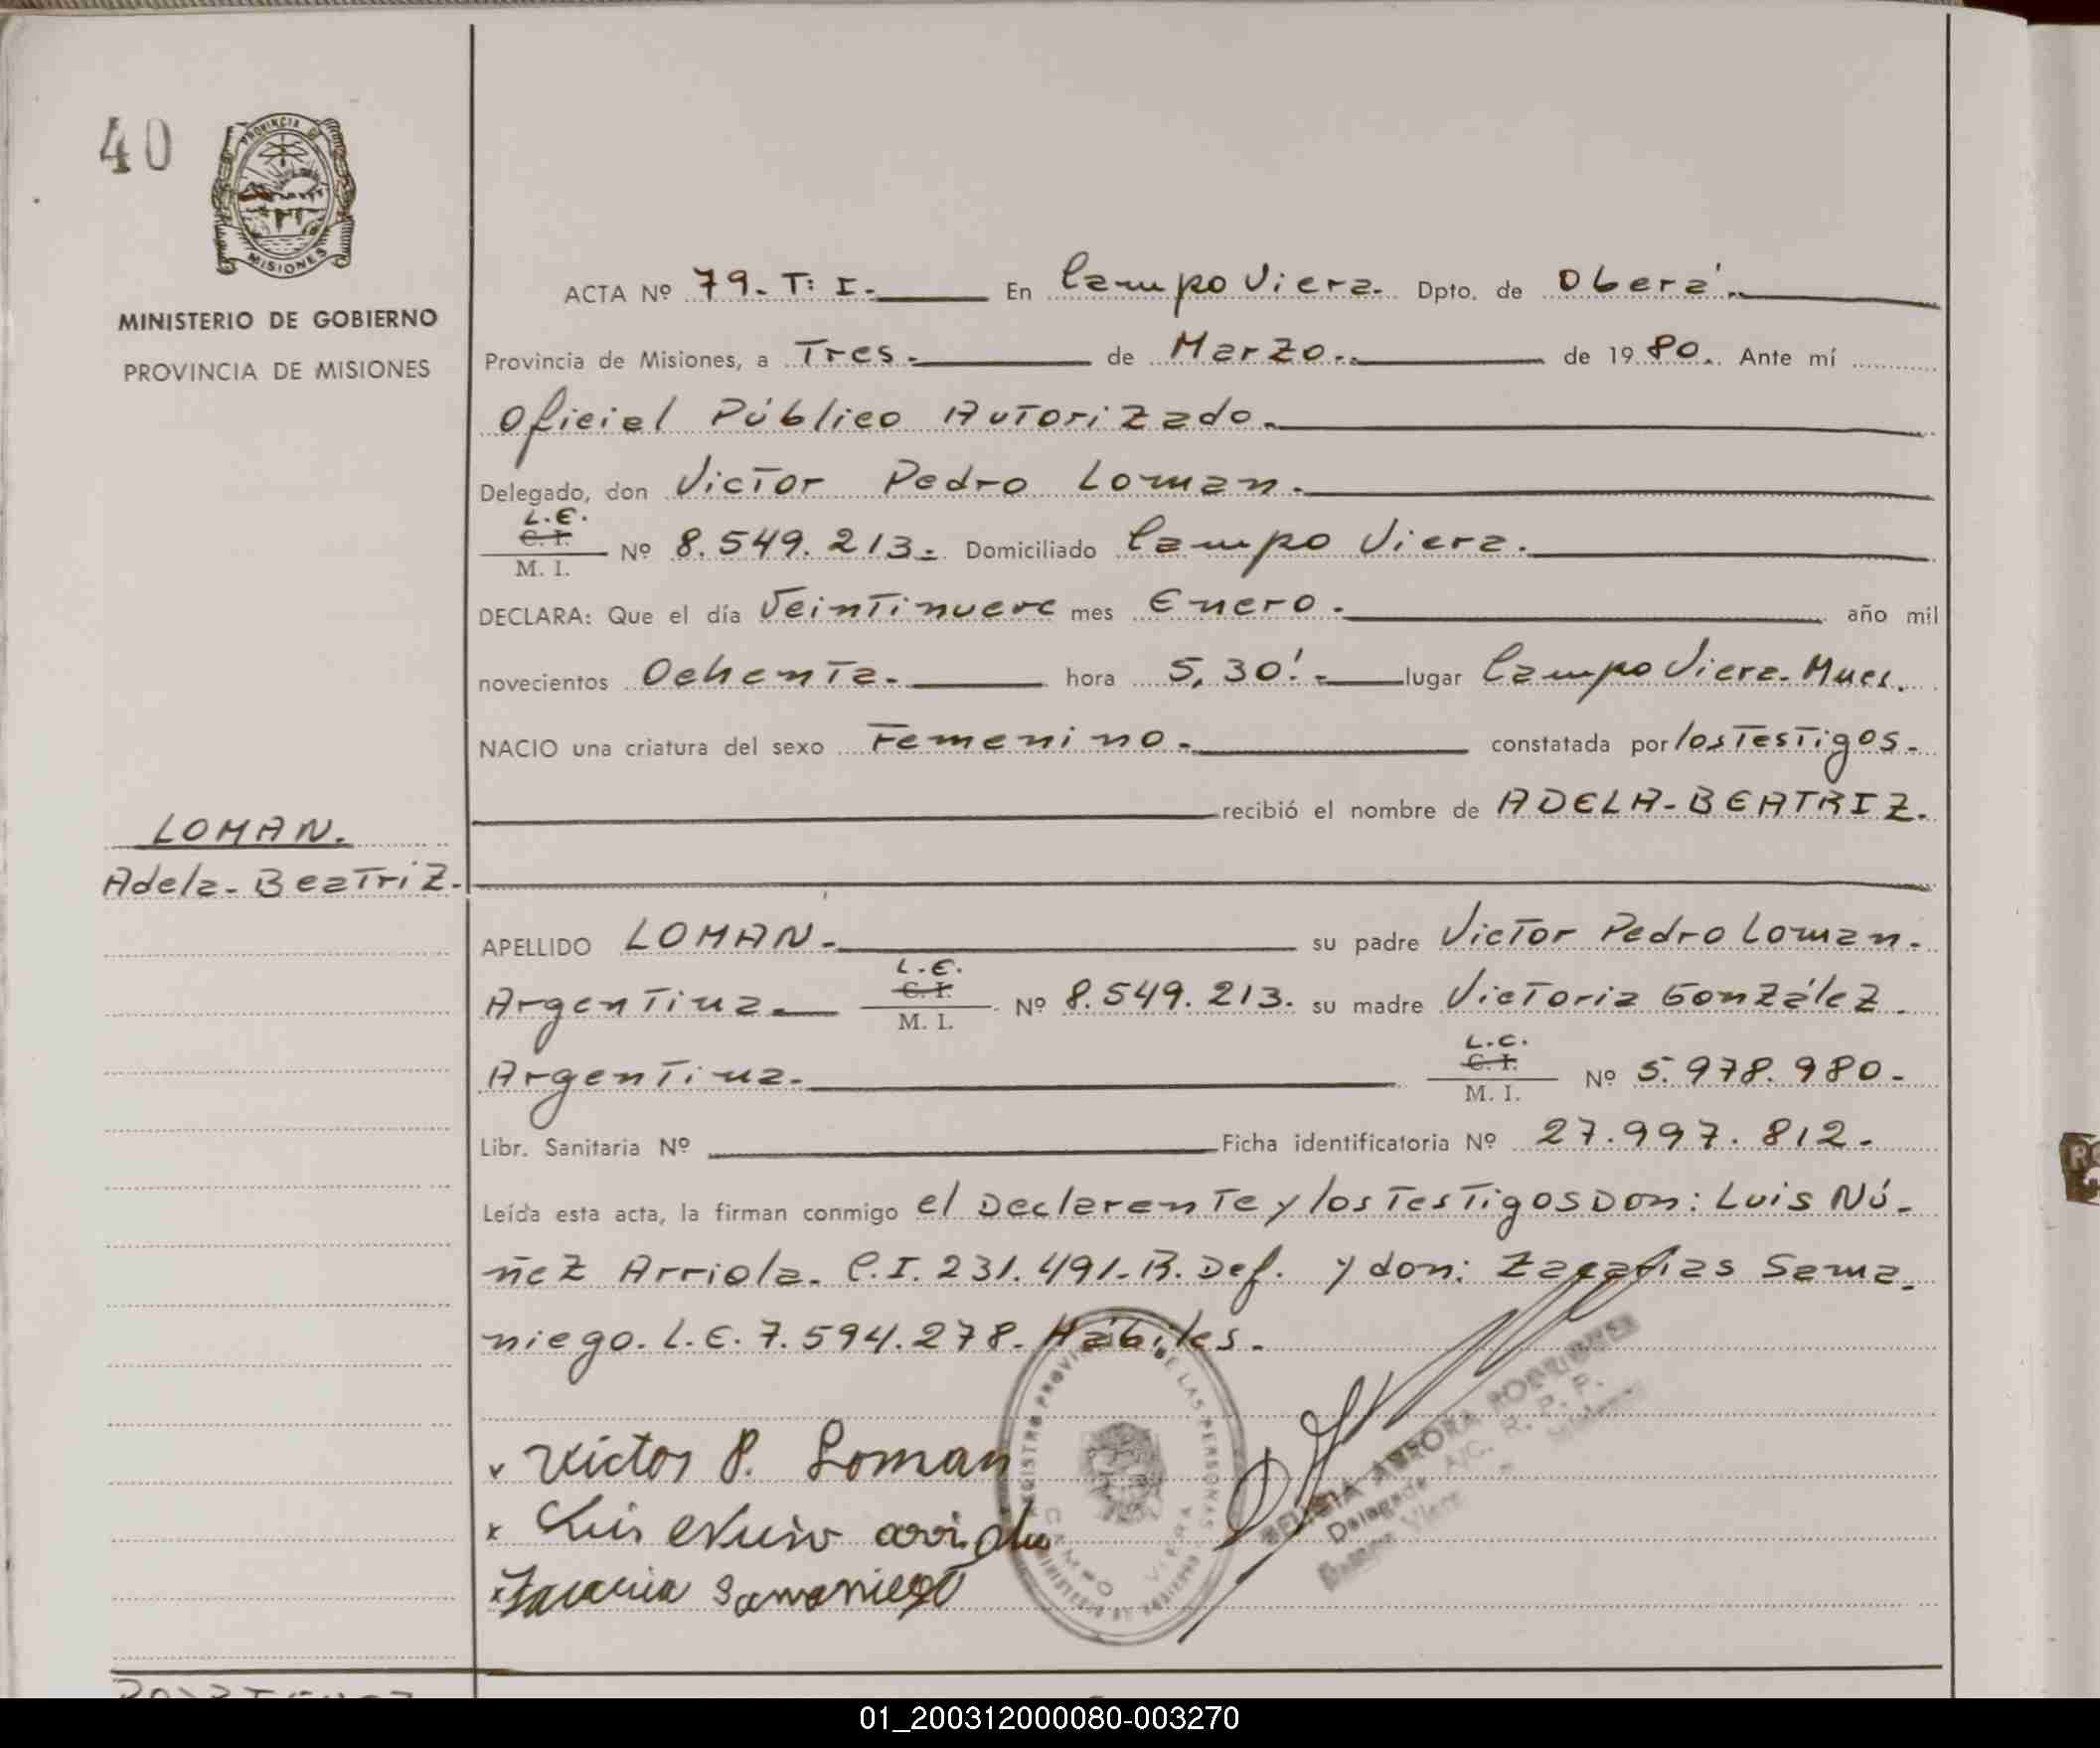 40
PROVINCIA
MISIONES
MINISTERIO DE GOBIERNO
PROVINCIA DE MISIONES
ACTA Nº 79. T: I. En Campo Viera. Dpto. de Oberá.
Provincia de Misiones, a Tres. de Marzo. de 1980. Ante mí
Oficial Público Autorizado.
Delegado, don Victor Pedro Loman.
L.E.
C. I.
M. I. Nº 8.549.213. Domiciliado Campo Viera.
DECLARA: Que el día Veintinueve mes Enero. año mil
novecientos Ochenta. hora 5,30'. lugar Campo Viera. Mnes.
NACIO una criatura del sexo Femenino. constatada por los Testigos.
recibió el nombre de ADELA-BEATRIZ.
LOMAN.
Adela-Beatriz.
APELLIDO LOMAN. su padre Victor Pedro Loman.
L.E.
C. I.
Argentina. M. I. Nº 8.549.213. su madre Victoria González
L.C.
C. I.
Argentina. M. I. Nº 5.978.980.
Libr. Sanitaria Nº Ficha identificatoria Nº 27.997.812.
Leída esta acta, la firman conmigo el Declarante y los Testigos Don: Luis Nú-
ñez Arriola. C.I. 231.491-R. Def. y don: Zacarías Sama-
niego. L.E. 7.594.278. Hábiles.
Victor P. Loman
Luis
Samaniego
LAS PERSONAS
CAMPO VIERA
AURORA RODRIGUEZ
Delegada
01_200312000080-003270